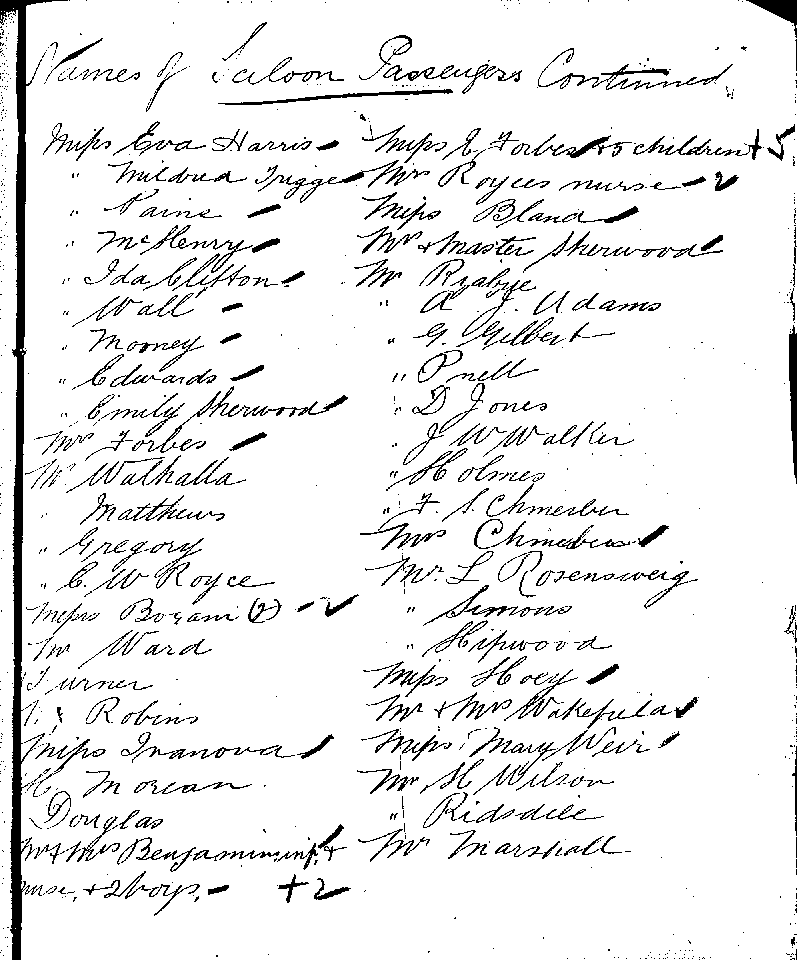 Names of Saloon Passengers Continued
Miss Eva Harris -
" Mildred Trigge -
" Raine -
" McHenry -
" Ida Clifton -
" Wall -
" Mooney -
" Edwards -
" Emily Sherwood -
Mrs Forbes -
Mr Walhalla
" Matthews
" Gregory
" C. W Royce
Miss Boram (2) - 2
Mr Ward
Turner
Robins
Miss Ivanova -
H. Morean
Douglas
Mr + Mrs Benjamin inf. +
nurse, + 2 boys, - +2
Miss E Forbes + 5 children + 5
Mrs Royces nurse - 2
Miss Bland -
Mrs + Master Sherwood -
Mr Rigbye
" A J. Adams
" G. Gilbert
" Pnell
" D Jones
" J W Walker
" Holmes
" F. S. Chmesber
Mrs -
Mr. L Rosensweig
" Simons
" Hipwood
Miss Hoey -
Mr + Mrs Wakefield -
Miss Mary Weir -
Mr H Wilson
" Ridsdile
Mr Marshall